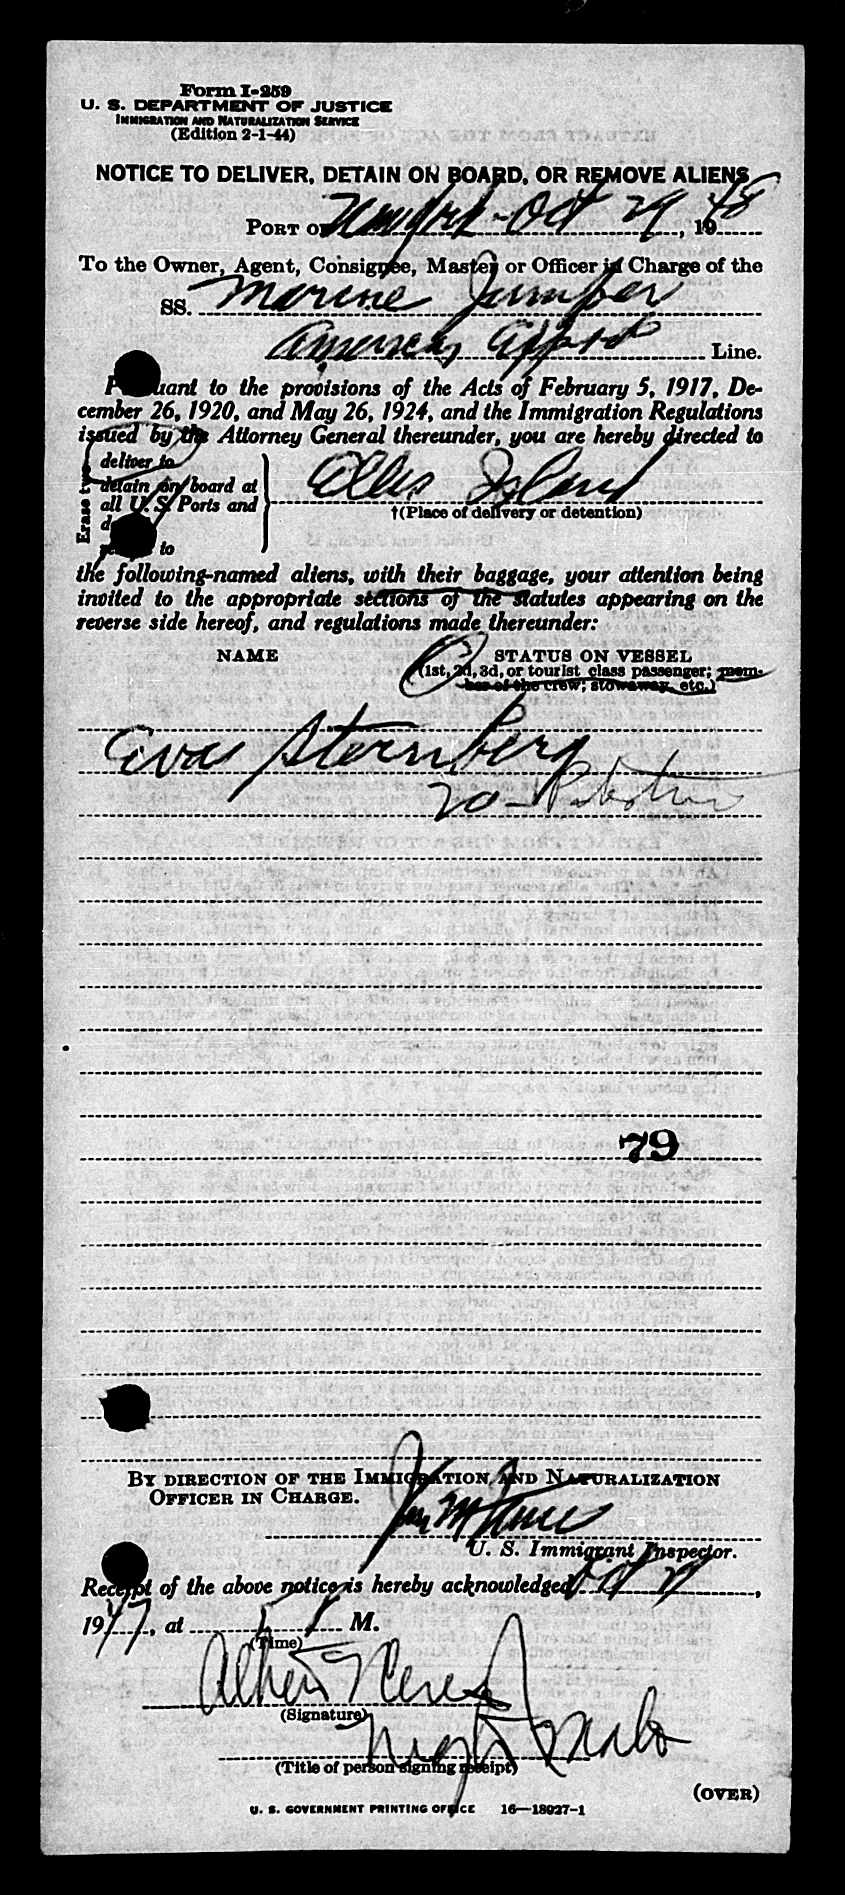 Form I-259
U. S. DEPARTMENT OF JUSTICE
IMMIGRATION AND NATURALIZATION SERVICE
(Edition 2-1-44)
NOTICE TO DELIVER, DETAIN ON BOARD, OR REMOVE ALIENS
PORT OF New York - Oct 29, 1948
To the Owner, Agent, Consignee, Master or Officer in Charge of the
SS. Marine Jumper
Line.
Pursuant to the provisions of the Acts of February 5, 1917, De-
cember 26, 1920, and May 26, 1924, and the Immigration Regulations
issued by the Attorney General thereunder, you are hereby directed to
Erase two
deliver to
detain on board at
all U. S. Ports and
to
Ellis Island
†(Place of delivery or detention)
the following-named aliens, with their baggage, your attention being
invited to the appropriate sections of the statutes appearing on the
reverse side hereof, and regulations made thereunder:
NAME
STATUS ON VESSEL
(1st, 2d, 3d, or tourist class passenger; mem-
ber of the crew; stowaway, etc.)
Eva Sternberg
20 -
79
BY DIRECTION OF THE IMMIGRATION AND NATURALIZATION
OFFICER IN CHARGE.
U. S. Immigrant Inspector.
Receipt of the above notice is hereby acknowledged Oct 29,
1947, at M.
(Time)
Albert
(Signature)
(Title of person signing receipt)
(OVER)
U. S. GOVERNMENT PRINTING OFFICE 16—18027-1